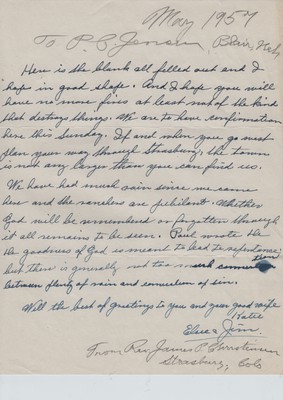 May 1957
To P. C. Jensen, Blair, Neb.
Here is the blank all filled out and I
hope in good shape. And I hope you will
have no more fires at least not of the kind
that destroys things. We are to have confirmation
here this Sunday. If and when you go west
plan your way through Strasburg, the town
is not any larger than you can find us.
We have had much rain since we came
here and the ranchers are jubilant. Whether
God will be remembered or forgotten through
it all remains to be seen. Paul wrote the
the goodness of God is meant to lead to repentance;
but there is generally not too much connection
between plenty of rain and conviction of sin.
With the best of greetings to you and your good wife
Katie
Elsie & Jim.
From Rev. James P. Christensen
Strasburg, Colo